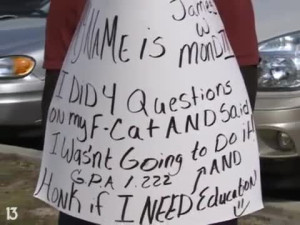 James
MY NAME is W
mond III
I DiD 4 Questions
on my F-Cat AND Said
I Wasnt Going to Do it!
G.P.A 1.222 AND
Honk if I NEED Education
13